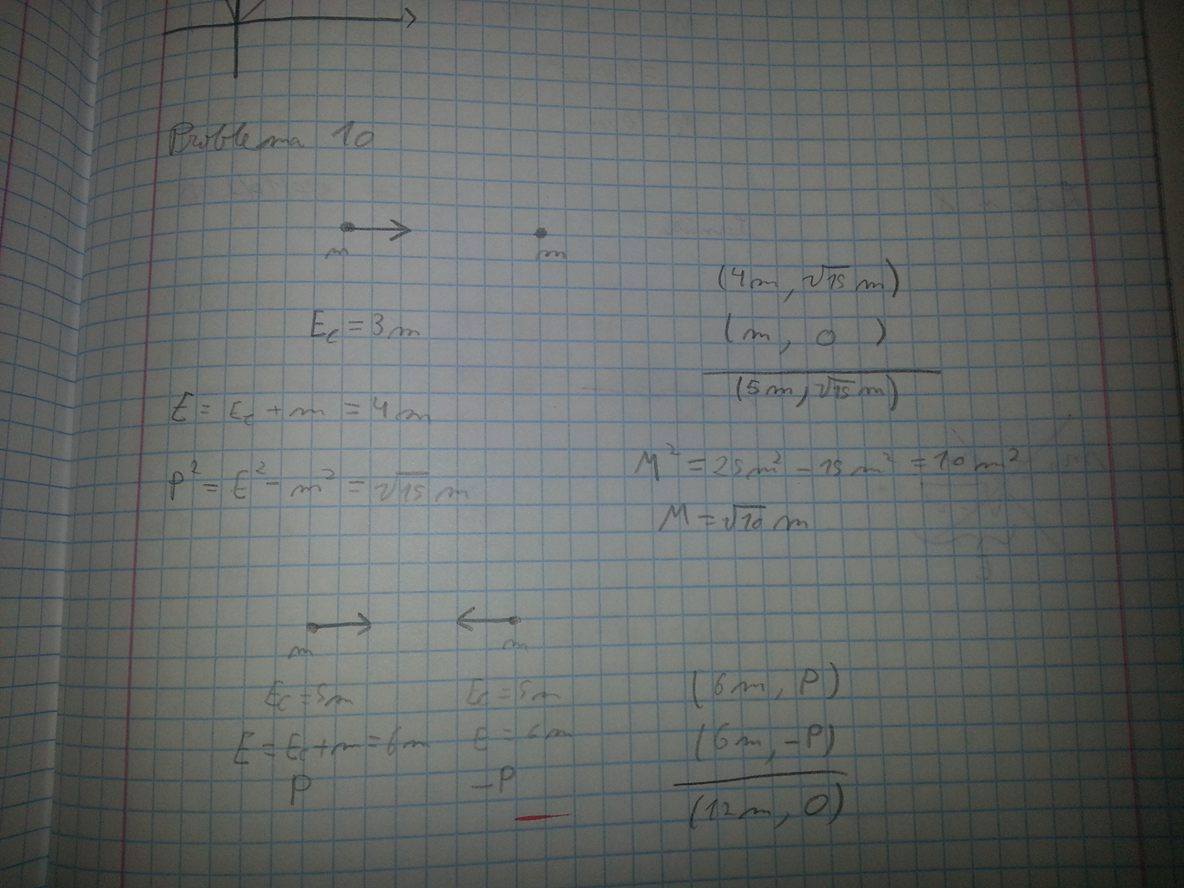 Problema 10
m m
E_c = 3m
E = E_c + m = 4m
P² = E² - m² = √15 m
(4m, √15 m)
(m, 0)
(5m, √15 m)
M² = 25m² - 15m² = 10m²
M = √10 m
m m
E_c = 5m E_c = 5m
E = E_c + m = 6m E = 6m
P -P
(6m, P)
(6m, -P)
(12m, 0)